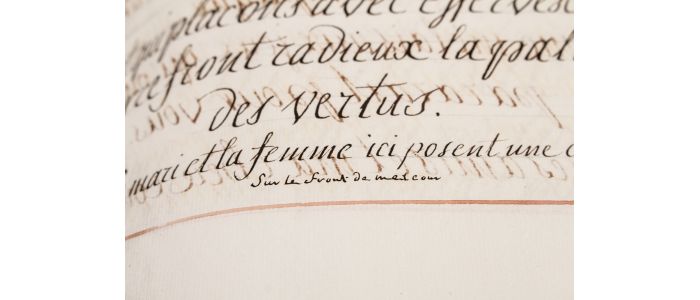 placons avec efferves
ce front radieux la pal
des vertus.
mari et la femme ici posent une c
Sur le front de mercour